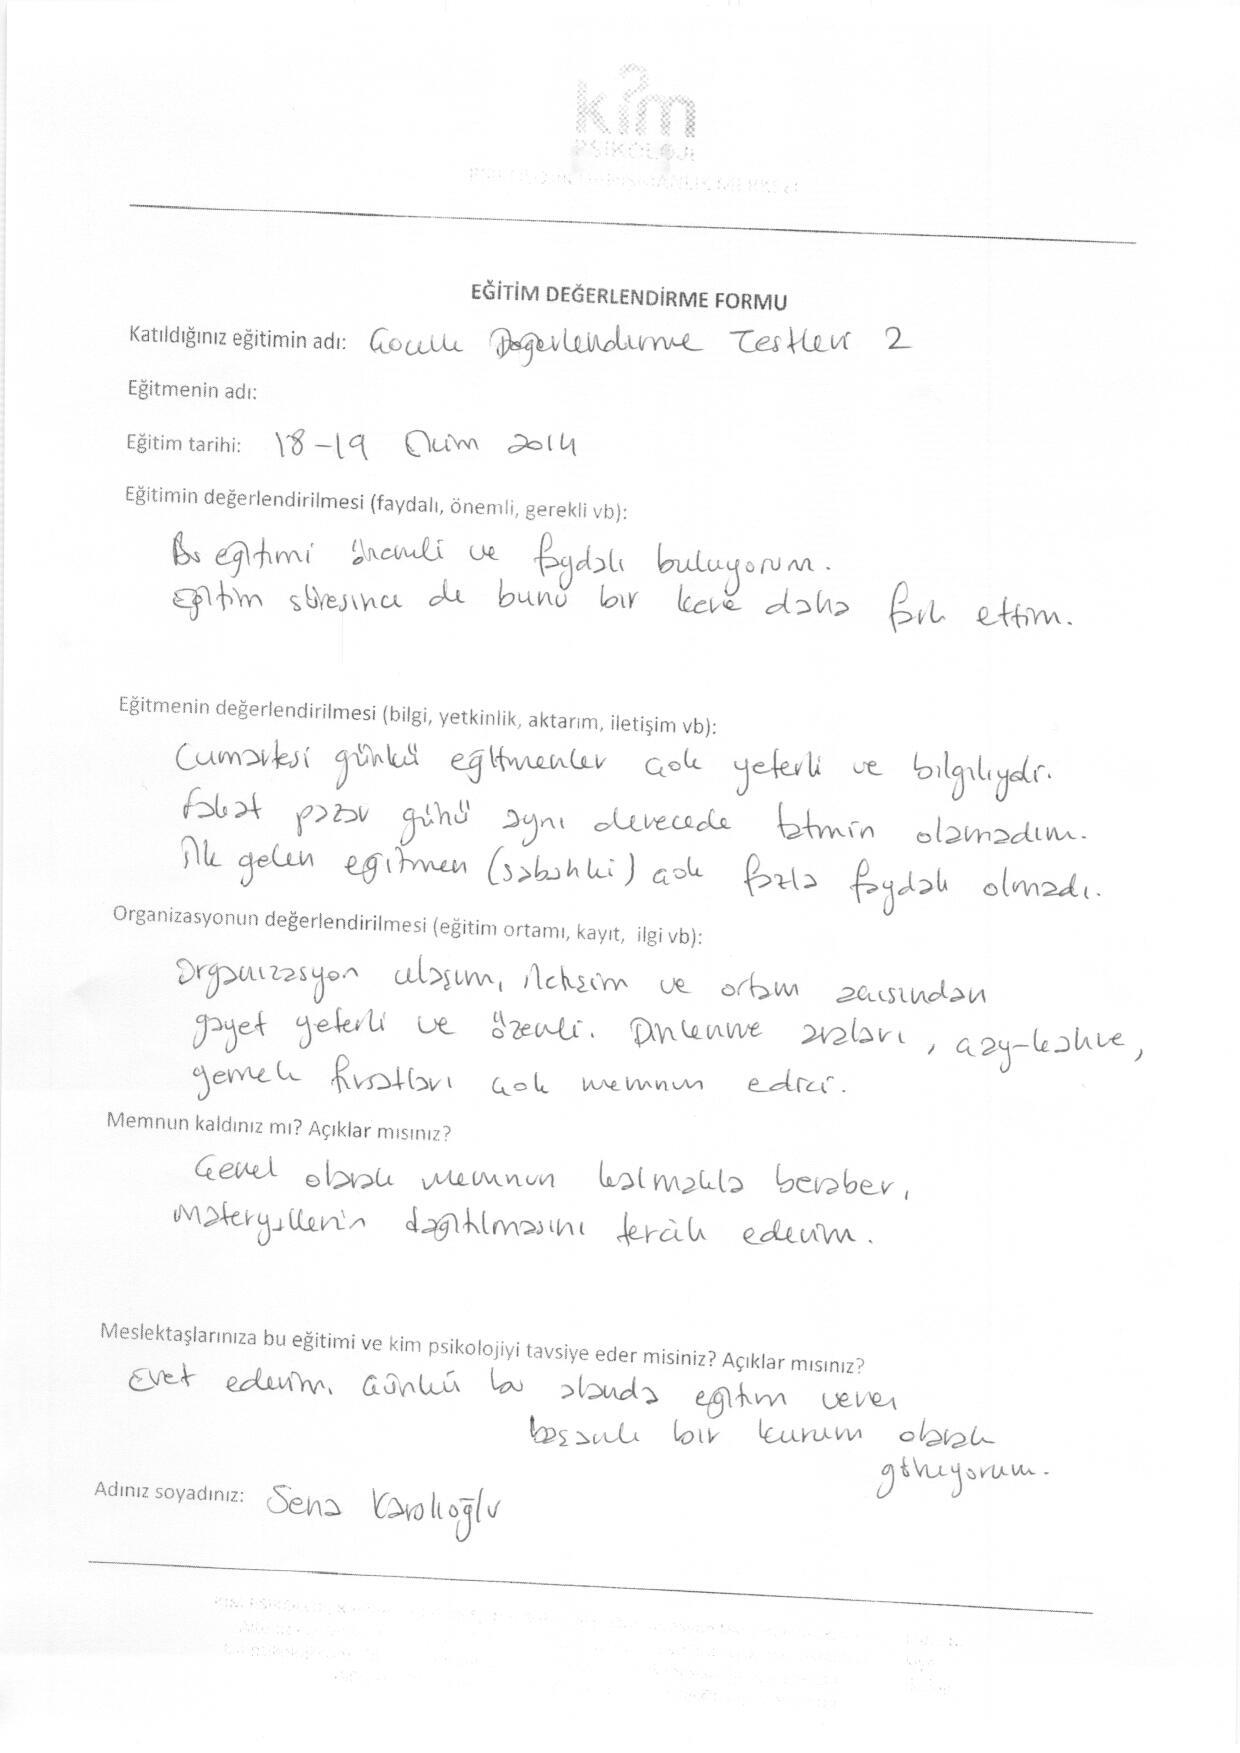 kim
PSİKOLOJİ
EĞİTİM DEĞERLENDİRME FORMU
Katıldığınız eğitimin adı: Çocuk Değerlendirme Testleri 2
Eğitmenin adı:
Eğitim tarihi: 18-19 Ekim 2014
Eğitimin değerlendirilmesi (faydalı, önemli, gerekli vb):
Bu eğitimi önemli ve faydalı buluyorum.
Eğitim süresince de bunu bir kere daha fark ettim.
Eğitmenin değerlendirilmesi (bilgi, yetkinlik, aktarım, iletişim vb):
Cumartesi günkü eğitmenler çok yeterli ve bilgiliydi.
Fakat pazar günü aynı derecede tatmin olamadım.
İlk gelen eğitmen (sabahki) çok fazla faydalı olmadı.
Organizasyonun değerlendirilmesi (eğitim ortamı, kayıt, ilgi vb):
Organizasyon ulaşım, iletişim ve ortam açısından
gayet yeterli ve özenli. Dinlenme araları, çay-kahve,
yemek fırsatları çok memnun edici.
Memnun kaldınız mı? Açıklar mısınız?
Genel olarak memnun kalmakla beraber,
materyallerin dağıtılmasını tercih ederim.
Meslektaşlarınıza bu eğitimi ve kim psikolojiyi tavsiye eder misiniz? Açıklar mısınız?
Evet ederim. Çünkü bu alanda eğitim veren
başarılı bir kurum olarak
görüyorum.
Adınız soyadınız: Sena